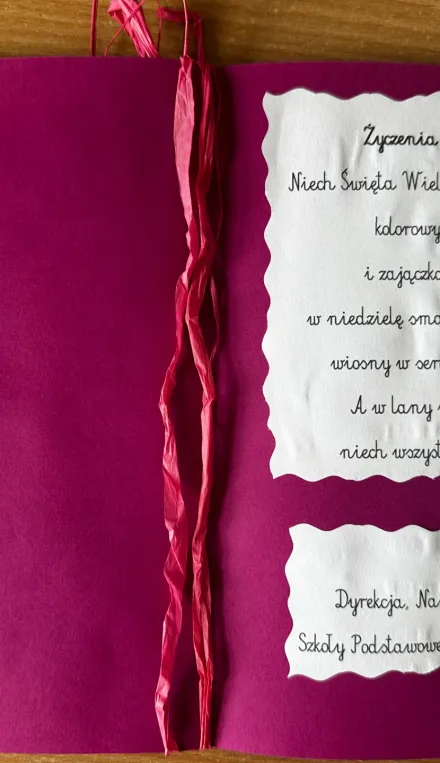 Życzenia
Niech Święta Wiel
kolorowy
i zajączko
w niedzielę smo
wiosny w ser
A w lany
niech wszyst
Dyrekcja, Na
Szkoły Podstawowe